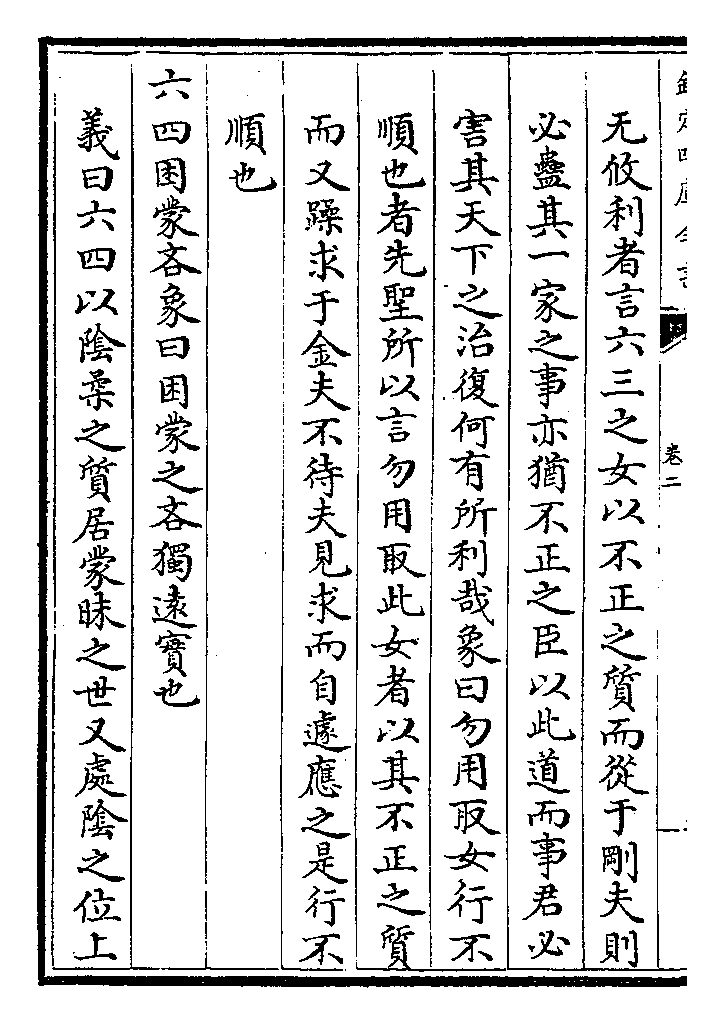 欽定四庫全書
卷二
无攸利者言六三之女以不正之質而從于剛夫則
必蠱其一家之事亦猶不正之臣以此道而事君必
害其天下之治復何有所利哉象曰勿用取女行不
順也者先聖所以言勿用取此女者以其不正之質
而又躁求于金夫不待夫見求而自遽應之是行不
順也
六四困蒙吝象曰困蒙之吝獨遠實也
義曰六四以陰柔之質居蒙昧之世又處陰之位上